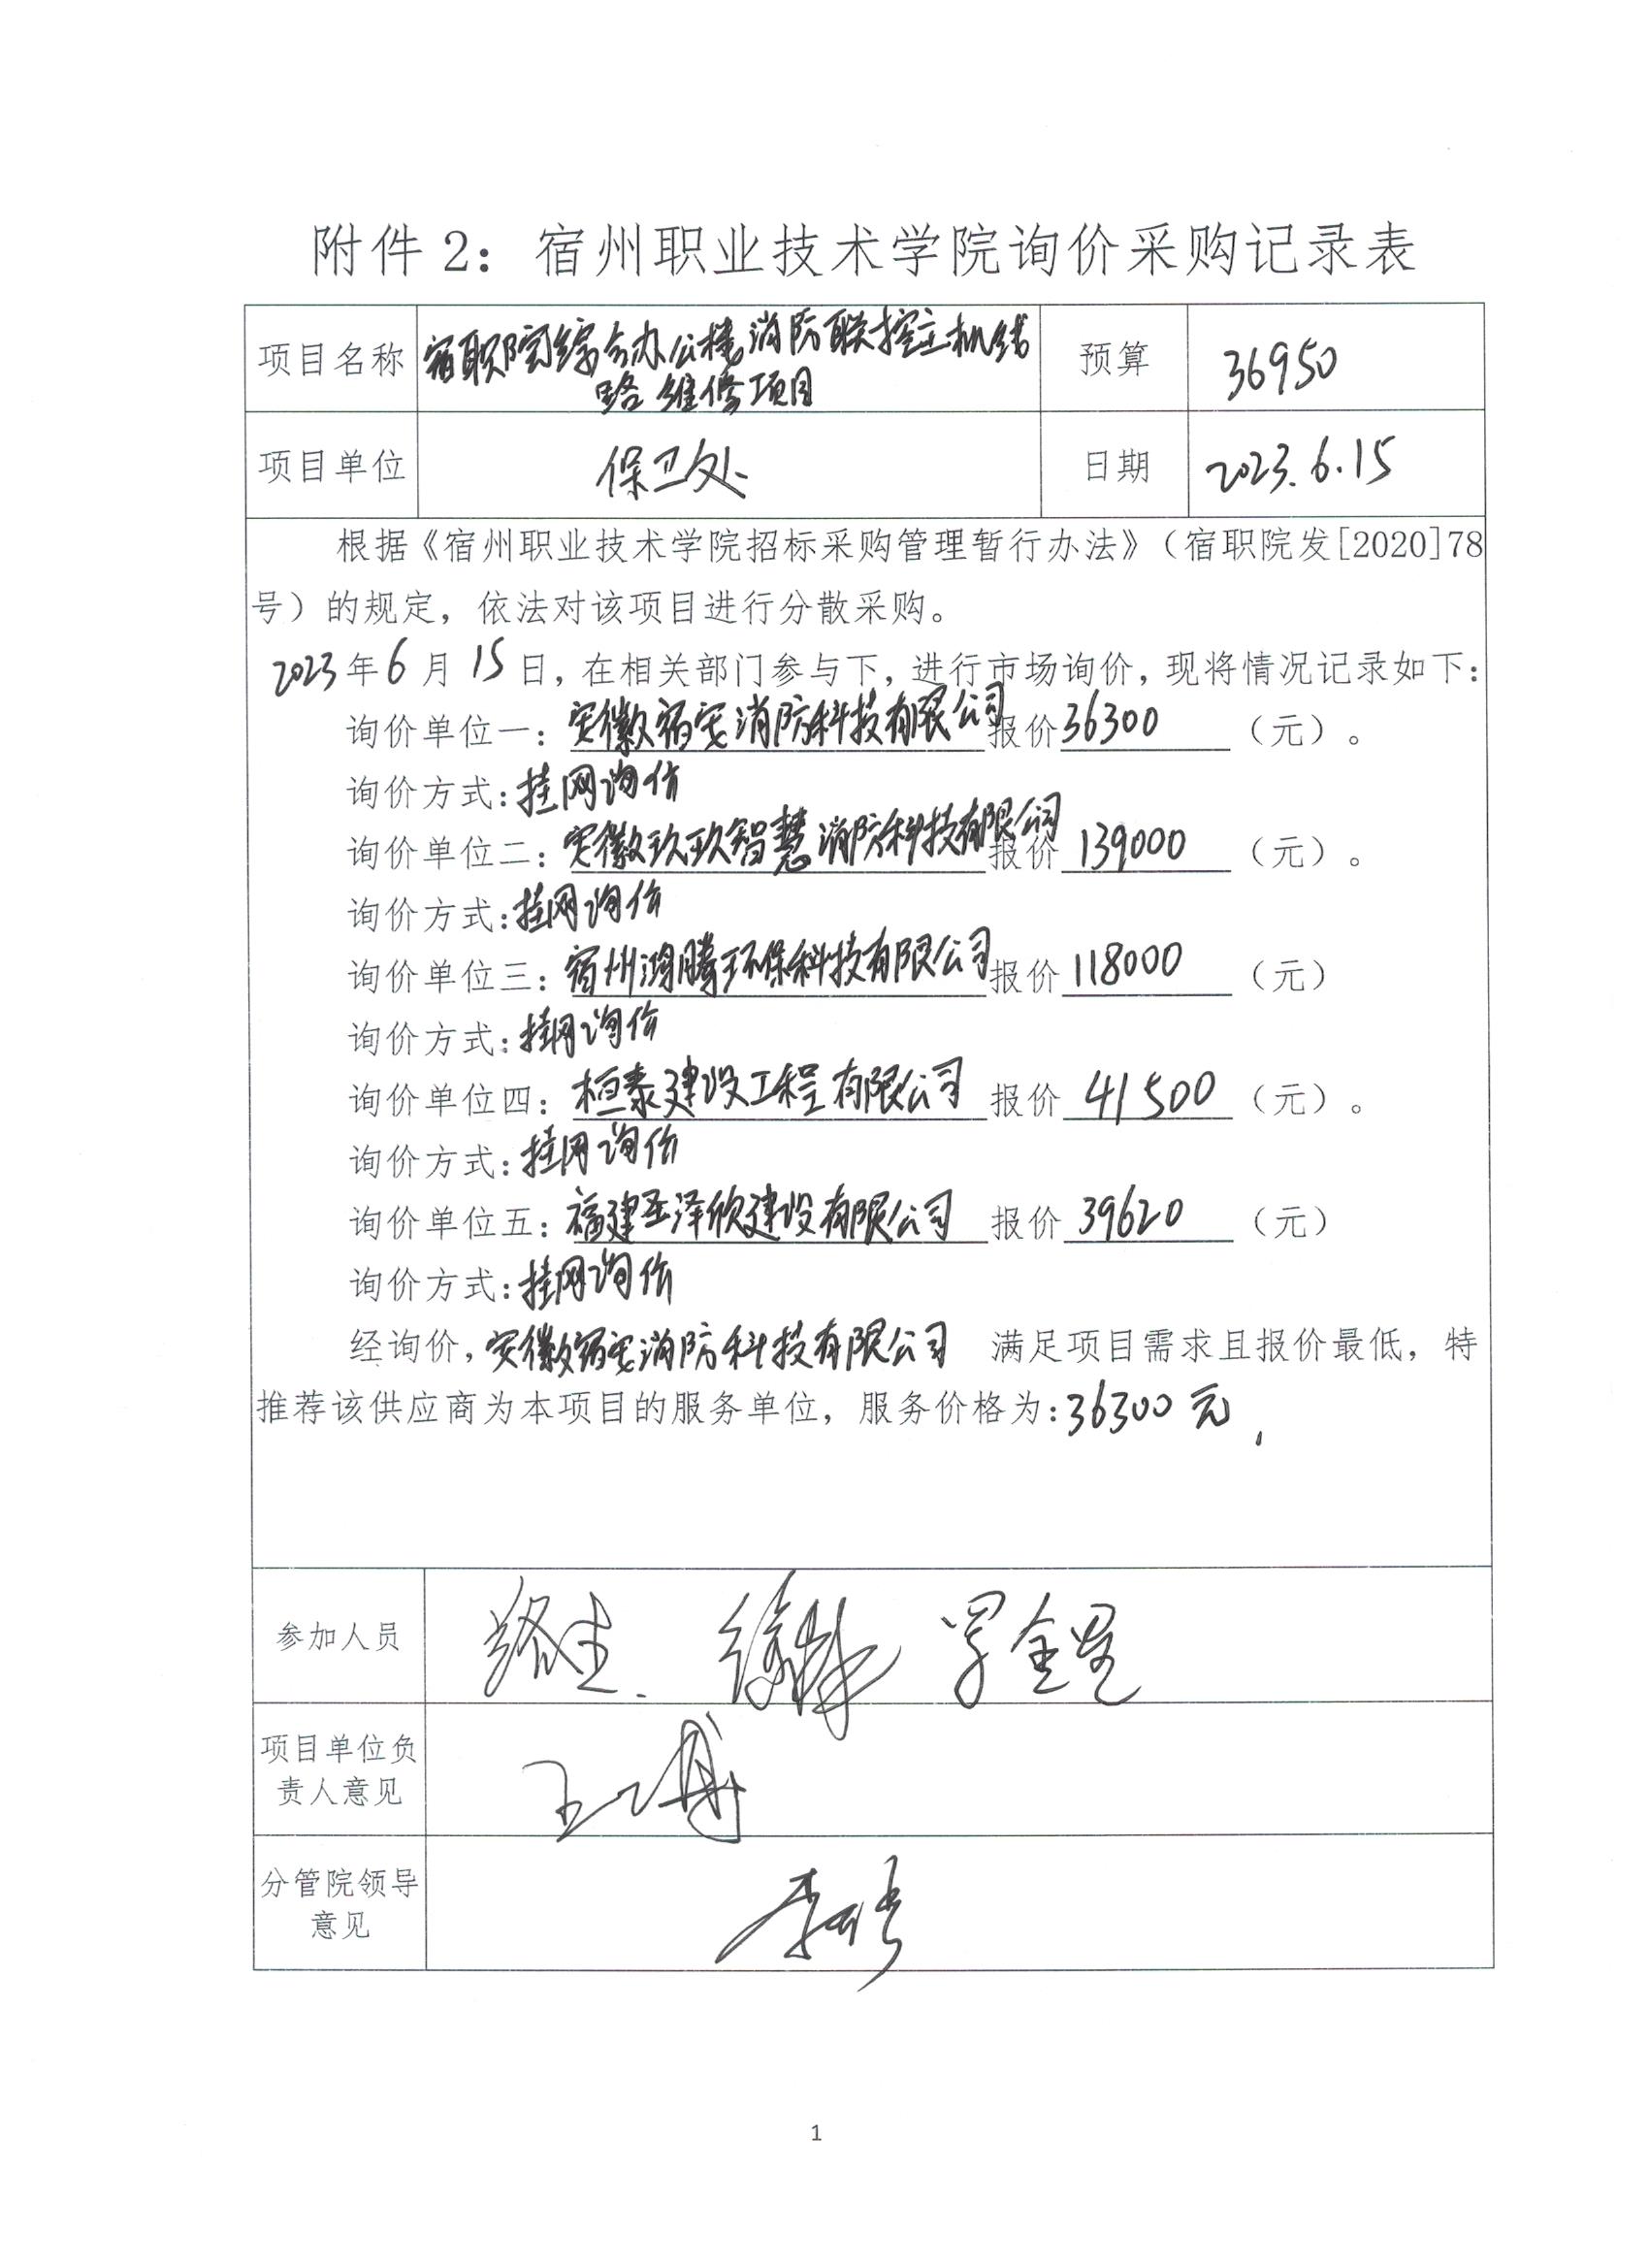 附件 2：宿州职业技术学院询价采购记录表
项目名称 宿职院综合办公楼消防联控主机线 预算 36950
路维修项目
项目单位 保卫处 日期 2023.6.15
根据《宿州职业技术学院招标采购管理暂行办法》（宿职院发[2020]78
号）的规定，依法对该项目进行分散采购。
2023年6月15日，在相关部门参与下，进行市场询价，现将情况记录如下：
询价单位一：安徽宿安消防科技有限公司报价36300（元）。
询价方式：挂网询价
询价单位二：安徽玖玖智慧消防科技有限公司报价139000（元）。
询价方式：挂网询价
询价单位三：宿州鸿腾环保科技有限公司报价118000（元）
询价方式：挂网询价
询价单位四：桓泰建设工程有限公司报价41500（元）。
询价方式：挂网询价
询价单位五：福建圣泽欣建设有限公司报价39620（元）
询价方式：挂网询价
经询价，安徽宿安消防科技有限公司 满足项目需求且报价最低，特
推荐该供应商为本项目的服务单位，服务价格为：36300元，
参加人员
项目单位负
责人意见
分管院领导
意见
1